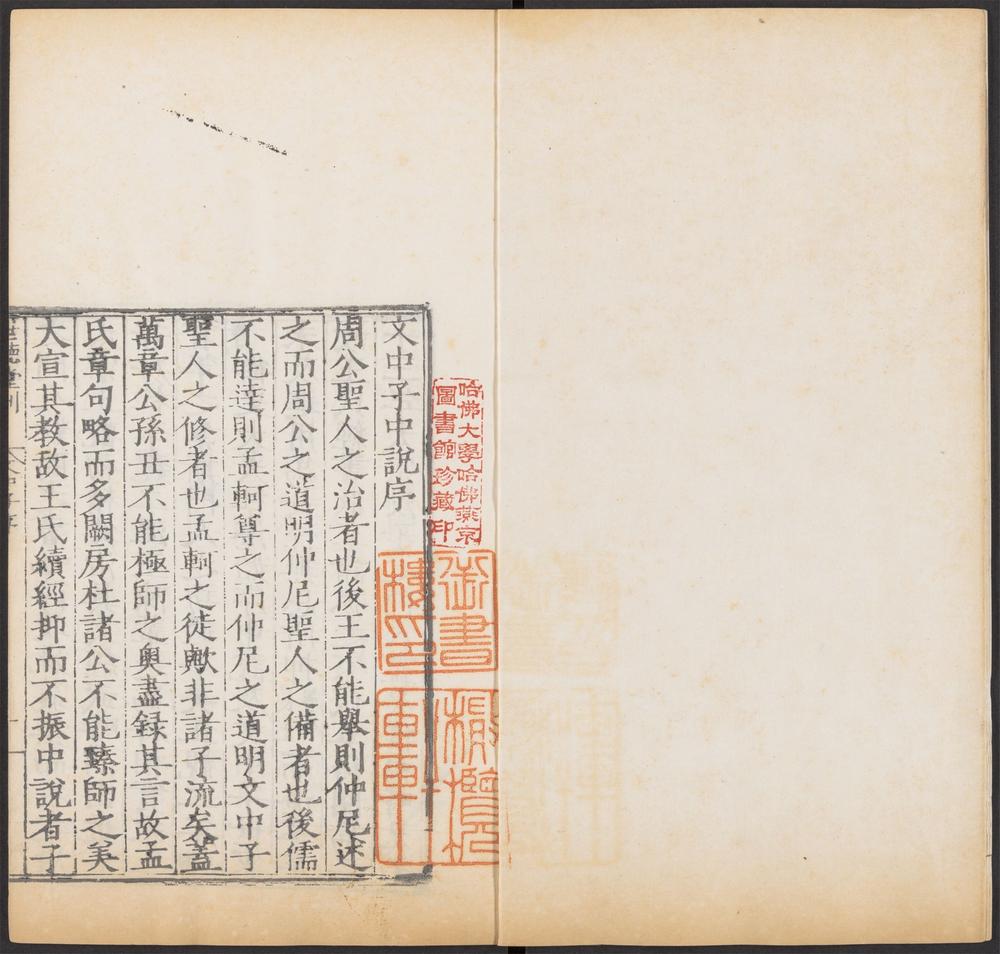 文中子中說序
周公聖人之治者也後王不能舉則仲尼述
之而周公之道明仲尼聖人之備者也後儒
不能達則孟軻尊之而仲尼之道明文中子
聖人之修者也孟軻之徒歟非諸子流矣蓋
萬章公孫丑不能極師之奧盡録其言故孟
氏章句略而多闕房杜諸公不能臻師之美
大宣其教故王氏續經抑而不振中說者子
世德堂刊
哈佛大學哈佛燕京
圖書館珍藏印
御書
樓印